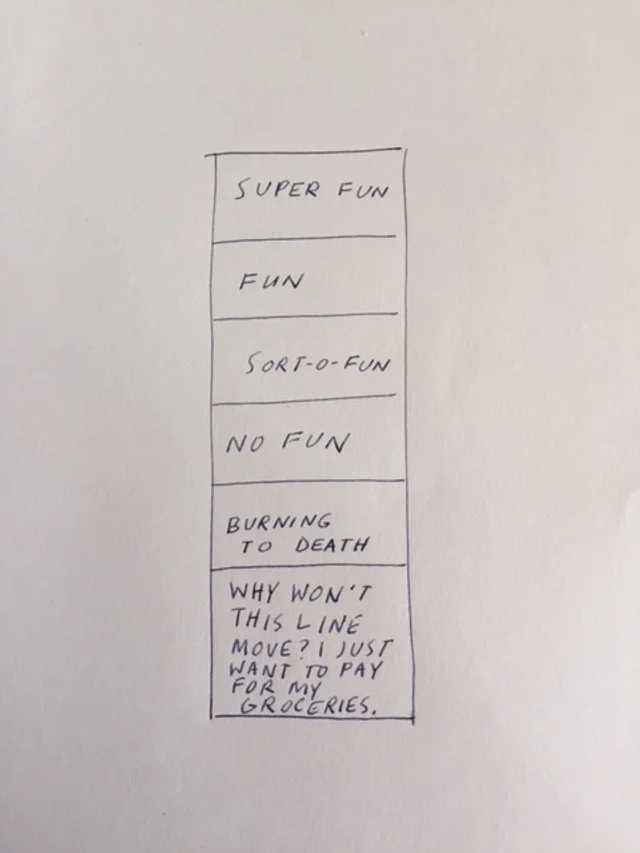 SUPER FUN
FUN
SORT-O-FUN
NO FUN
BURNING
TO DEATH
WHY WON'T
THIS LINE
MOVE? I JUST
WANT TO PAY
FOR MY
GROCERIES.